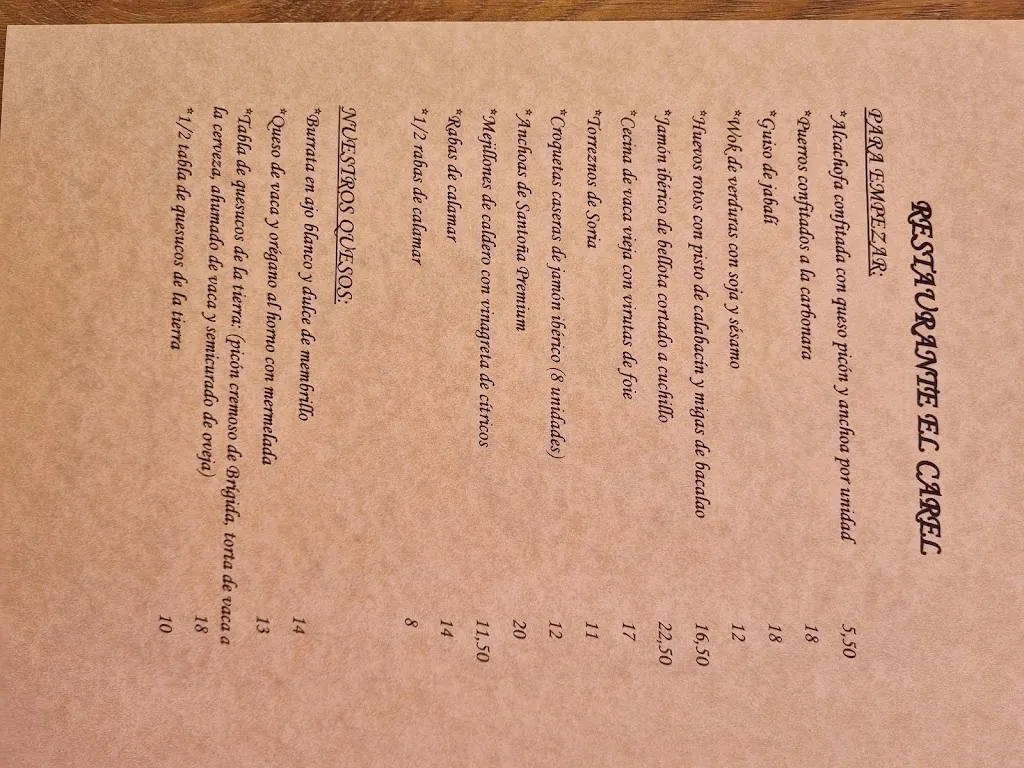 RESTAURANTE EL CAREL
PARA EMPEZAR:
*Alcachofa confitada con queso picón y anchoa por unidad 5,50
*Puerros confitados a la carbonara 18
*Guiso de jabalí 18
*Wok de verduras con soja y sésamo 12
*Huevos rotos con pisto de calabacín y migas de bacalao 16,50
*Jamón ibérico de bellota cortado a cuchillo 22,50
*Cecina de vaca vieja con virutas de foie 17
*Torreznos de Soria 11
*Croquetas caseras de jamón ibérico (8 unidades) 12
*Anchoas de Santoña Premium 20
*Mejillones de caldero con vinagreta de cítricos 11,50
*Rabas de calamar 14
*1/2 rabas de calamar 8
NUESTROS QUESOS:
*Burrata en ajo blanco y dulce de membrillo 14
*Queso de vaca y orégano al horno con mermelada 13
*Tabla de quesucos de la tierra: (picón cremoso de Brígida, torta de vaca a
la cerveza, ahumado de vaca y semicurado de oveja) 18
*1/2 tabla de quesucos de la tierra 10